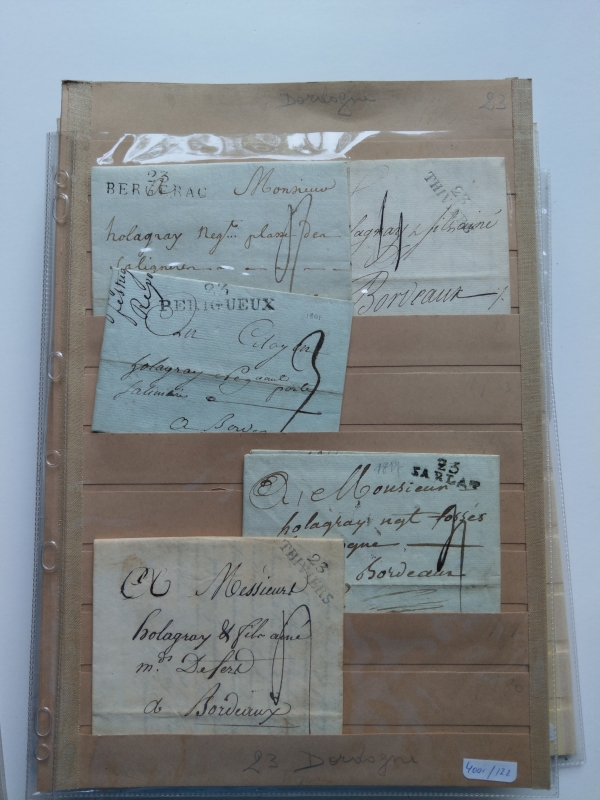 Dordogne 23
23
BERGERAC Monsieur
holagray Negt. place
23
THIVIERS
lagray & fils ainé
Bordeaux
23
PERIGUEUX
1801
Au Citoyen
holagray Negociant porte
a Bord
23
SARLAT
A Monsieur
holagray negt fossés
Bordeaux
23
THIVIERS
A Messieurs
holagray & fils ainé
mds De fers
a Bordeaux
23 Dordogne
4001/122